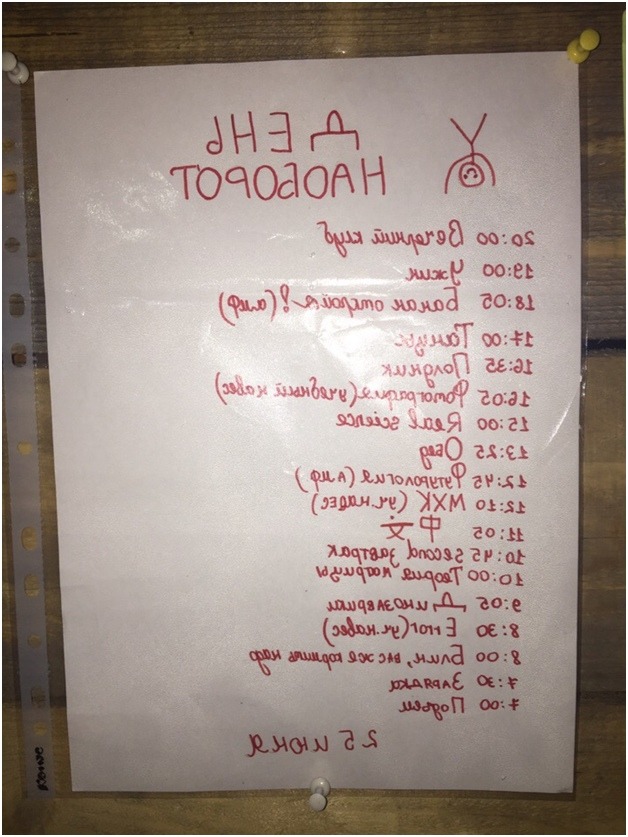 ДЕНЬ
НАОБОРОТ
20:00 Вечерний клуб
19:00 Ужин
18:05 Банан откройся! (амф)
17:00 Танцы
16:35 Полдник
16:05 Фотография (учебный навес)
15:00 Real science
13:25 Обед
12:45 Футурология (амф)
12:10 МХК (уч. навес)
11:05 中文
10:45 second завтрак
10:00 Теория матрицы
9:05 Динозаврики
8:30 Error (уч. навес)
8:00 Блин, вас же кормить надо
7:30 Зарядка
7:00 Подъем
25 июня